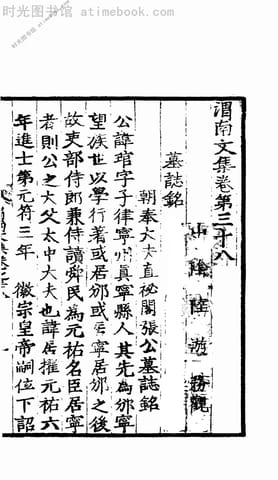 时光图书馆 www.atimebook.com
渭南文集卷第三十八
山陰陸游務觀
墓誌銘
朝奉大夫直祕閣張公墓誌銘
公諱琯字子律寧州眞寧縣人其先為邠寧
望族世以學行著或居邠或居寧居邠之後
故吏部侍郎兼侍讀舜民為元祐名臣居寧
者則公之大父太中大夫也諱居擢元祐六
年進士第元符三年　徽宗皇帝嗣位下詔
时光图书馆 atimebook.com